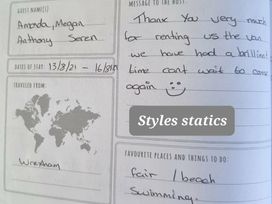 GUEST NAME(S)
Amanda, Megan
Anthony Seren
DATES OF STAY: 13/8/21 – 16/8/21
TRAVELED FROM:
Wrexham
MESSAGE TO THE HOST:
Thank You very much
for renting us the van
we have had a brilliant
time cant wait to come
again
Styles statics
FAVOURITE PLACES AND THINGS TO DO:
fair / beach
Swimming.